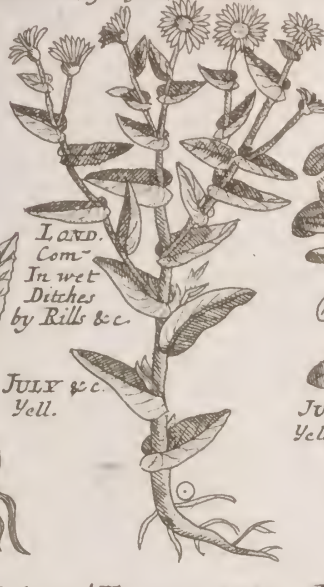 LOND.
Com~
In wet
Ditches
by Rills &c.
JULY &c.
Yell.
JU
Yell